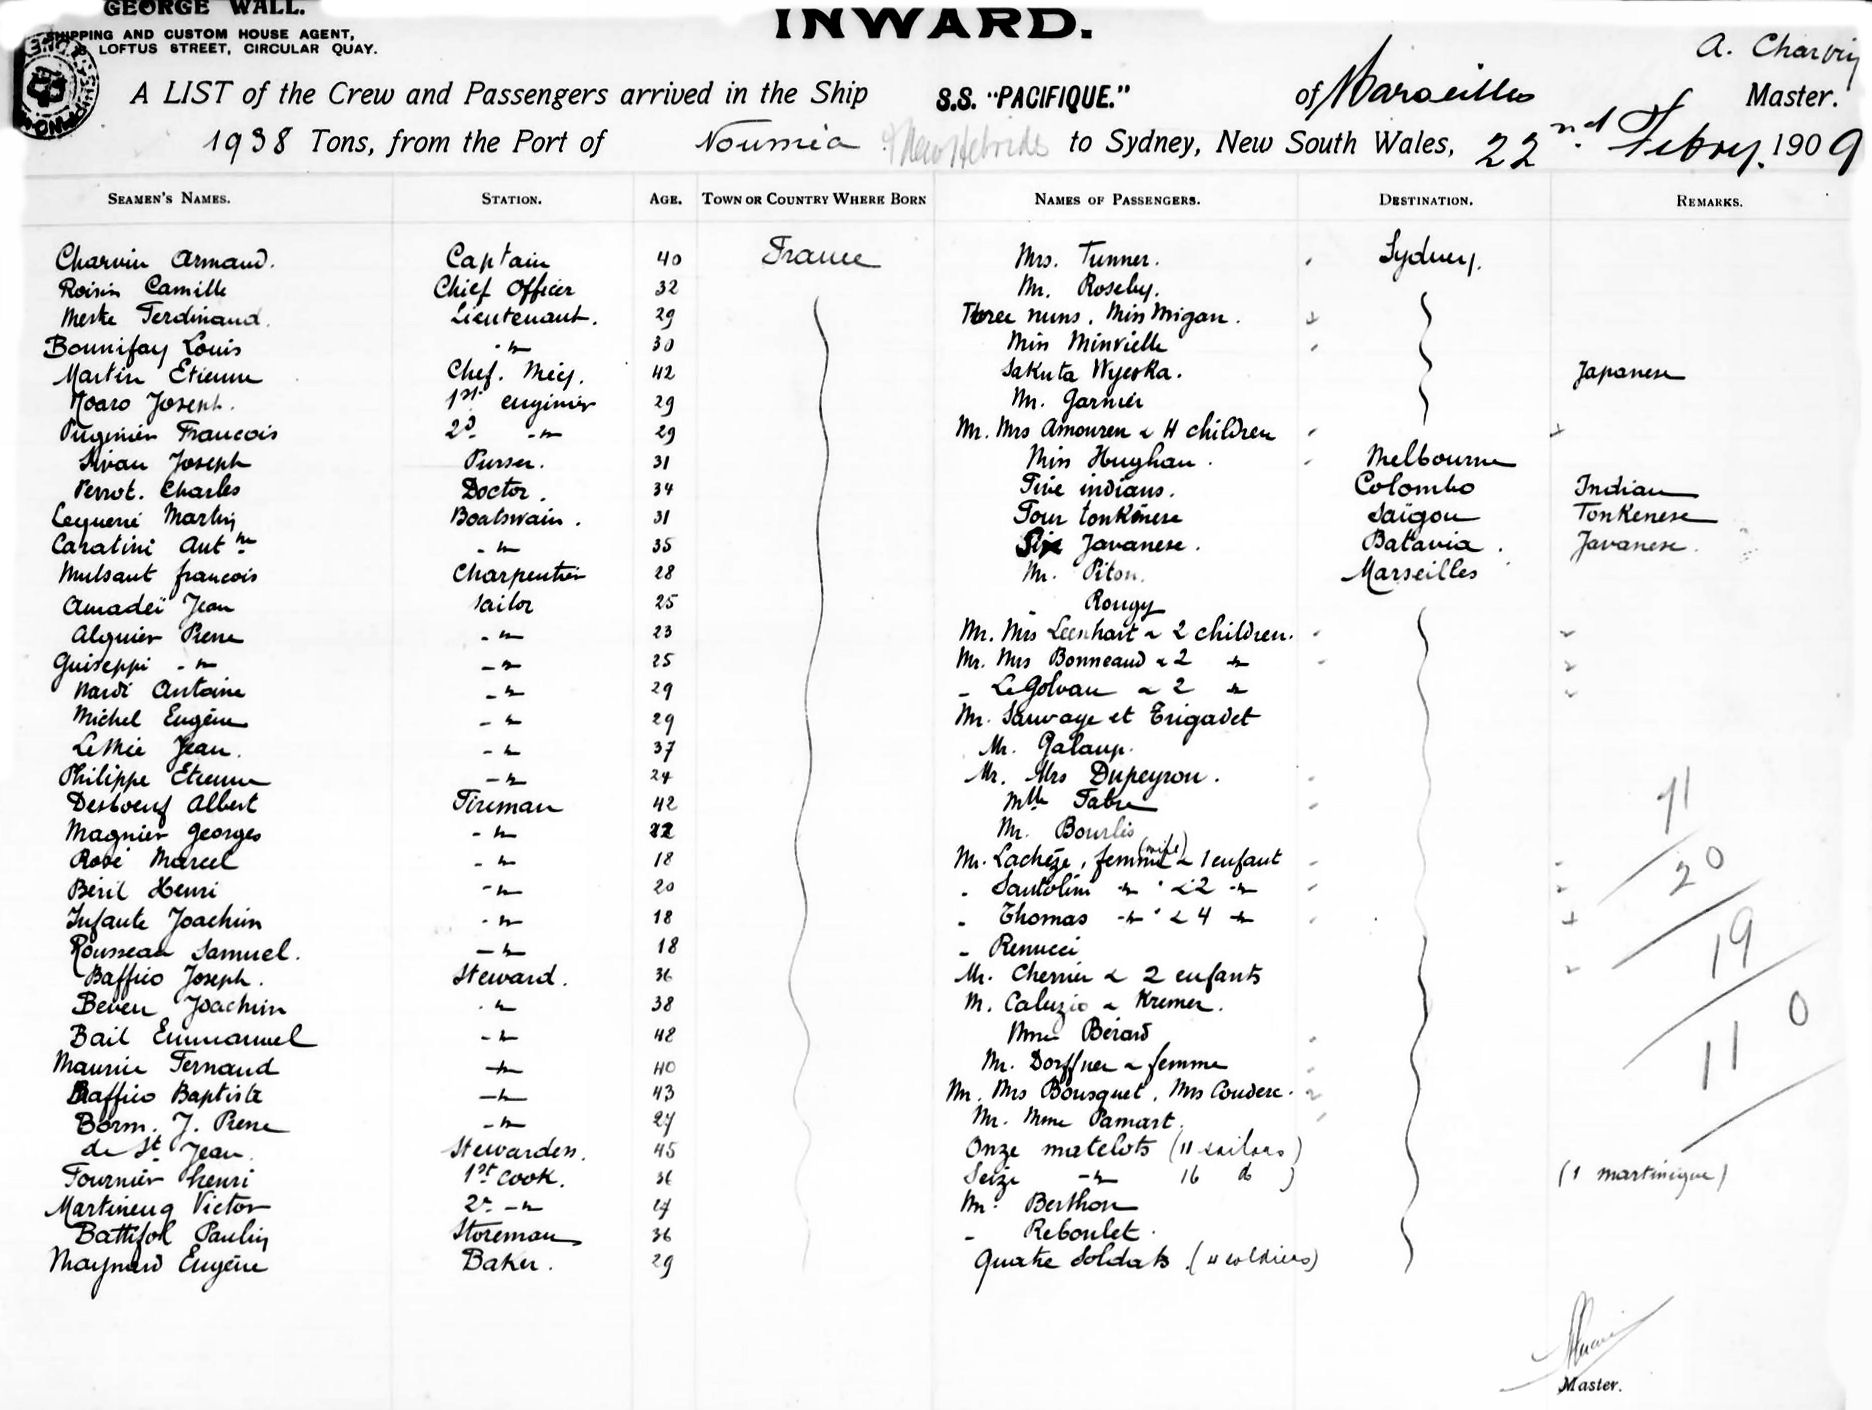 GEORGE WALL.
SHIPPING AND CUSTOM HOUSE AGENT,
LOFTUS STREET, CIRCULAR QUAY.
INWARD.
A. Charvin
A LIST of the Crew and Passengers arrived in the Ship S.S. "PACIFIQUE." of Marseilles Master.
1938 Tons, from the Port of Noumea & New Hebrides to Sydney, New South Wales, 22nd Febry. 1909
SEAMEN'S NAMES. STATION. AGE. TOWN OR COUNTRY WHERE BORN NAMES OF PASSENGERS. DESTINATION. REMARKS.
Charvin Armand. Captain 40 France Mrs. Tunner. Sydney.
Roisin Camille Chief Officer 32 Mr. Roseby.
Meske Ferdinand. Lieutenant. 29 Three nuns. Miss Migan.
Bounifay Louis -"- 30 Miss Minvielle
Martin Etienne Chef. Mecj. 42 Sakuta Wyeoka. Japanese
Noaro Joseph. 1st enginier 29 Mr. Garnier
Puginier Francois 2d. -"- 29 Mr. Mrs Amouren & 4 children
Sivan Joseph Purser. 31 Miss Hughan. Melbourne
Perrot. Charles Doctor. 34 Five indians. Colombo Indian
Leguené Martin Boatswain. 31 Four tonkenese Saïgon Tonkenese
Caratini Antne -"- 35 Six Javanese. Batavia. Javanese.
Mulsant francois Charpentier 28 Mr. Piton. Marseilles
Amadeï Jean Sailor 25 - Rougy
Alquier Pierre -"- 23 Mr. Mrs Leenhart & 2 children.
Guiseppi -"- -"- 25 Mr. Mrs Bonneaud & 2 -"-
Nardi Antoine -"- 29 - Le Golvan & 2 -"-
Michel Eugène -"- 29 Mr. Sauvage et Trigadet
Le Mée Jean. -"- 37 Mr. Galaup.
Philippe Etienne -"- 24 Mr. Mrs Dupeyron.
Desboeuf Albert Fireman 42 Mlle Fabre
Magnier Georges -"- 22 Mr. Bourlis
Rosé Marcel -"- 18 Mr. Lachèze, femme (wife) & 1 enfant
Béril Henri -"- 20 - Santolini -"- & 2 -"-
Infante Joachim -"- 18 - Thomas -"- & 4 -"-
Rousseau Samuel. -"- 18 - Renucci
Baffico Joseph. Steward. 36 Mr. Cherrier & 2 enfants
Beven Joachim -"- 38 M. Caluzio & Kremer.
Bail Emmanuel -"- 48 Mme Bérard
Maurin Fernand -"- 40 Mr. Dorffner & femme
Baffico Baptiste -"- 43 Mr. Mrs Bousquet. Mrs Couderc.
Borm. J. Pierre -"- 27 Mr. Mme Pamart.
de St. Jean. Stewardess. 45 Onze matelots (11 sailors)
Fournier henri 1st cook. 36 Seize -"- 16 do ) (1 martinique)
Martinenq Victor 2d -"- 27 Mr. Berthon
Battifol Paulin Storeman 36 - Reboulet.
Maynard Eugène Baker. 29 Quatre soldats. (4 soldiers)
71
20
19
110
Master.